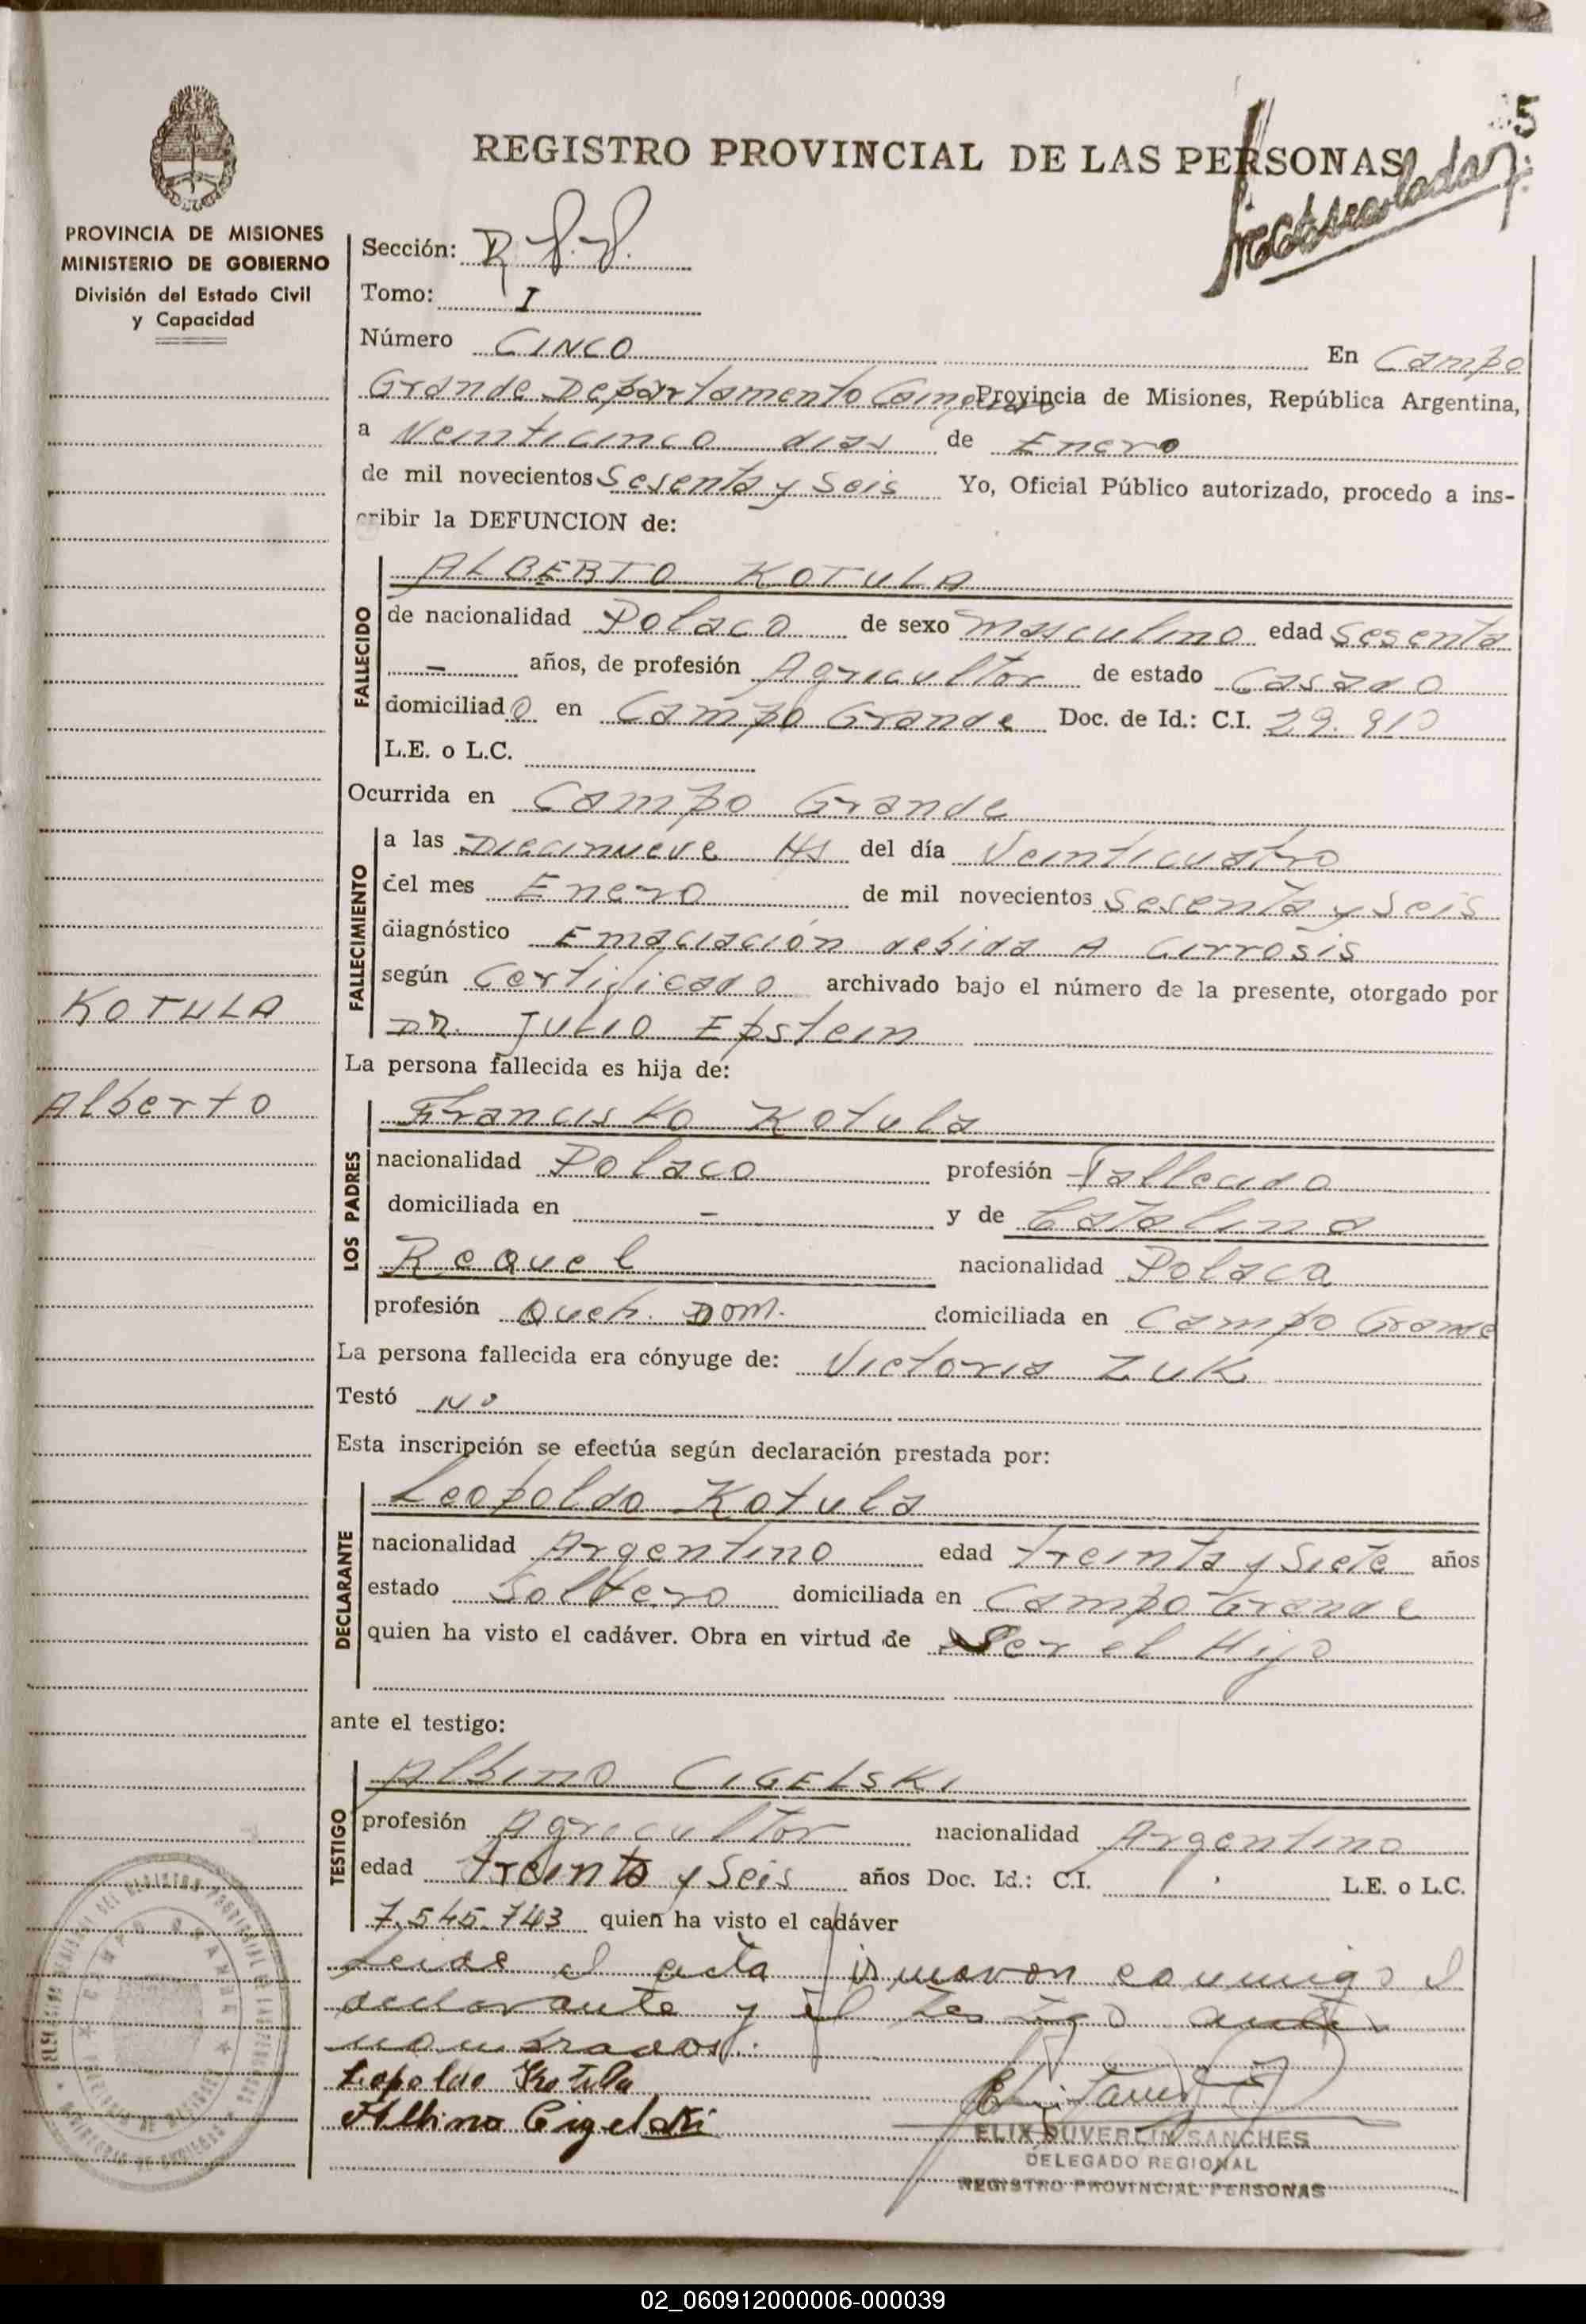 5
REGISTRO PROVINCIAL DE LAS PERSONAS
PROVINCIA DE MISIONES
MINISTERIO DE GOBIERNO
División del Estado Civil
y Capacidad
Sección:
Tomo: I
Número CINCO En Campo
Grande Departamento Provincia de Misiones, República Argentina,
a Veinticinco dias de Enero
de mil novecientos Sesenta y Seis Yo, Oficial Público autorizado, procedo a ins-
cribir la DEFUNCION de:
FALLECIDO
ALBERTO KOTULA
de nacionalidad Polaco de sexo masculino edad Sesenta
- años, de profesión Agricultor de estado Casado
domiciliado en Campo Grande Doc. de Id.: C.I. 29.910
L.E. o L.C.
Ocurrida en Campo Grande
FALLECIMIENTO
a las Diecinueve Hs del día Veinticuatro
del mes Enero de mil novecientos Sesenta y Seis
diagnóstico Emaciación debida A Cirrosis
según Certificado archivado bajo el número de la presente, otorgado por
DR. JULIO Epstein
KOTULA
Alberto
La persona fallecida es hija de:
LOS PADRES
Francisko Kotula
nacionalidad Polaco profesión Fallecido
domiciliada en - y de Catalina
Requel nacionalidad Polaca
profesión Queh. Dom. domiciliada en Campo Grande
La persona fallecida era cónyuge de: Victoria ZUK
Testó No
Esta inscripción se efectúa según declaración prestada por:
DECLARANTE
Leopoldo Kotula
nacionalidad Argentino edad treinta y Siete años
estado Soltero domiciliada en Campo Grande
quien ha visto el cadáver. Obra en virtud de Ser el Hijo
ante el testigo:
TESTIGO
Albino CIGELSKI
profesión Agricultor nacionalidad Argentino
edad treinta y Seis años Doc. Id.: C.I. L.E. o L.C.
7.545.743 quien ha visto el cadáver
Leida el acta firmaron conmigo el
declarante y el testigo antes
nombrados.
Leopoldo Kotula
Albino Cigelski
ELIX DUVERLIN SANCHES
DELEGADO REGIONAL
REGISTRO PROVINCIAL PERSONAS
02_060912000006-000039